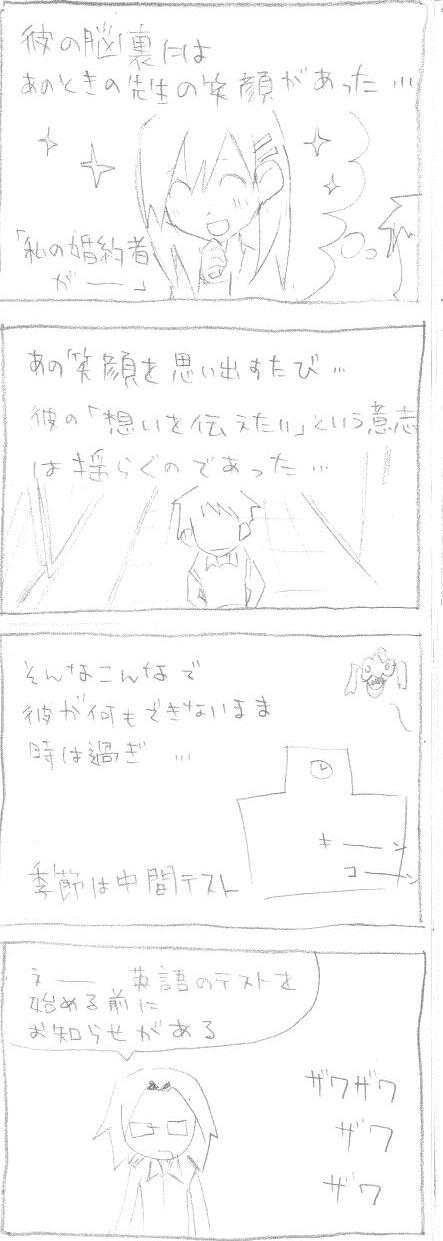 彼の脳裏には
あのときの先生の笑顔があった…
「私の婚約者
が――」
あの笑顔を思い出すたび…
彼の「想いを伝えたい」という意志
は揺らぐのであった…
そんなこんなで
彼が何もできないまま
時は過ぎ…
キーン
コーン
季節は中間テスト
えー 英語のテストを
始める前に
お知らせがある
ザワザワ
ザワ
ザワ